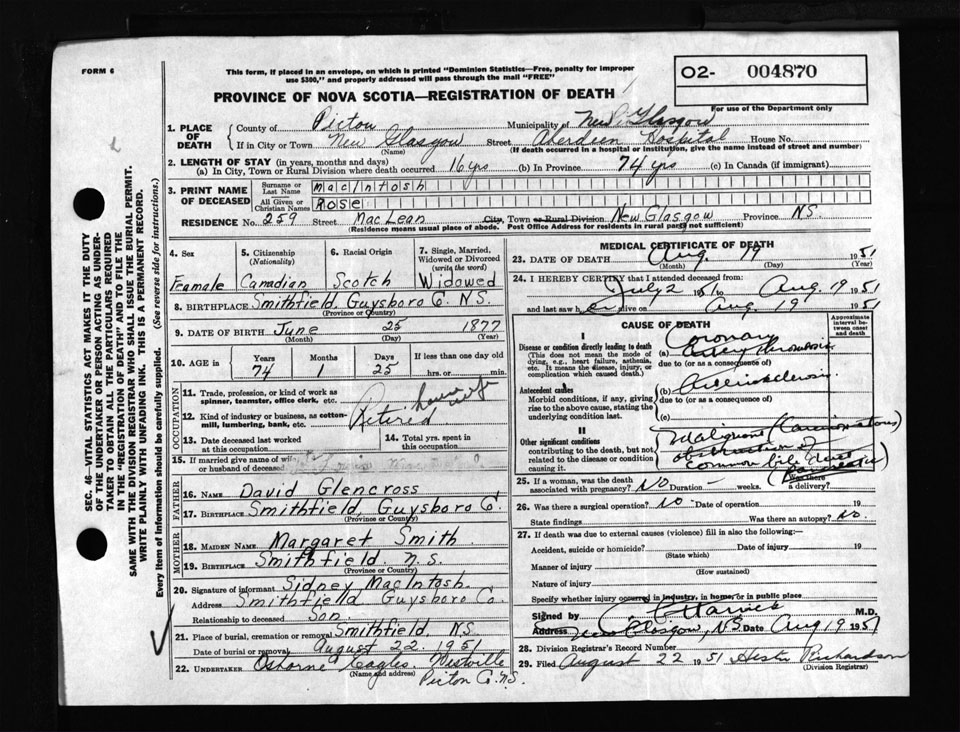 FORM 6
This form, if placed in an envelope, on which is printed "Dominion Statistics—Free, penalty for improper
use $300," and properly addressed will pass through the mail "FREE"
02- 004870
For use of the Department only
PROVINCE OF NOVA SCOTIA—REGISTRATION OF DEATH
1. PLACE OF DEATH
County of Pictou Municipality of New Glasgow
If in City or Town New Glasgow Street Aberdeen Hospital House No.
(Name) (If death occurred in a hospital or institution, give the name instead of street and number)
2. LENGTH OF STAY (in years, months and days)
(a) In City, Town or Rural Division where death occurred 16 yrs (b) In Province 74 yrs (c) In Canada (if immigrant)
3. PRINT NAME OF DECEASED
Surname or Last Name MacIntosh
All Given or Christian Names Rose
RESIDENCE No. 259 Street MacLean City, Town or Rural Division New Glasgow Province N.S.
(Residence means usual place of abode. Post Office Address for residents in rural parts not sufficient)
4. Sex Feamale
5. Citizenship (Nationality) Canadian
6. Racial Origin Scotch
7. Single, Married, Widowed or Divorced (write the word) Widowed
8. BIRTHPLACE Smithfield, Guysboro Co. N.S.
(Province or Country)
9. DATE OF BIRTH June 25 1877
(Month) (Day) (Year)
10. AGE in Years Months Days If less than one day old
74 1 25 hrs. or min.
OCCUPATION
11. Trade, profession, or kind of work as
spinner, teamster, office clerk, etc.
12. Kind of industry or business, as cotton-
mill, lumbering, bank, etc. Retired
13. Date deceased last worked
at this occupation
14. Total yrs. spent in
this occupation
15. If married give name of wife
or husband of deceased
FATHER
16. NAME David Glencross
17. BIRTHPLACE Smithfield, Guysboro Co.
(Province or Country)
MOTHER
18. MAIDEN NAME Margaret Smith
19. BIRTHPLACE Smithfield. N.S.
(Province or Country)
20. Signature of informant Sidney MacIntosh.
Address Smithfield Guysboro Co.
Relationship to deceased Son.
21. Place of burial, cremation or removal Smithfield, NS
Date of burial or removal August 22, 1951
22. UNDERTAKER Osborne Eagles. Westville
(Name and address)
Pictou Co. N.S.
MEDICAL CERTIFICATE OF DEATH
23. DATE OF DEATH Aug. 19 1951
(Month) (Day) (Year)
24. I HEREBY CERTIFY that I attended deceased from
July 2 1951 to Aug 19 1951
and last saw her alive on Aug. 19 1951
CAUSE OF DEATH
Approximate interval between onset and death
I
Disease or condition directly leading to death
(This does not mean the mode of
dying, e.g., heart failure, asthenia,
etc. It means the disease, injury, or
complication which caused death.)
(a) Coronary artery thrombosis
due to (or as a consequence of)
Antecedent causes
Morbid conditions, if any, giving
rise to the above cause, stating the
underlying condition last.
(b) Arteriosclerosis
due to (or as a consequence of)
(c)
II
Other significant conditions
contributing to the death, but not
related to the disease or condition
causing it.
Malignant (Carcinomatous)
obstruction of
common bile duct
(Pancreatic)
25. If a woman, was the death
associated with pregnancy? No Duration — weeks.
Was there
a delivery?
26. Was there a surgical operation? No - Date of operation 19
State findings Was there an autopsy? No.
27. If death was due to external causes (violence) fill in also the following:
Accident, suicide or homicide? Date of injury 19
(State which)
Manner of injury
(How sustained)
Nature of injury
Specify whether injury occurred in industry, in home, or in public place
Signed by M.D.
Address New Glasgow, N.S. Date Aug 19 1951
28. Division Registrar's Record Number
29. Filed August 22 1951 Hester Richardson
(Division Registrar)
SEC. 46—VITAL STATISTICS ACT MAKES IT THE DUTY
OF THE UNDERTAKER OR PERSON ACTING AS UNDER-
TAKER TO OBTAIN ALL THE PARTICULARS REQUIRED
IN THE "REGISTRATION OF DEATH" AND TO FILE THE
SAME WITH THE DIVISION REGISTRAR WHO SHALL ISSUE THE BURIAL PERMIT.
WRITE PLAINLY WITH UNFADING INK. THIS IS A PERMANENT RECORD.
Every item of Information should be carefully supplied. (See reverse side for instructions.)